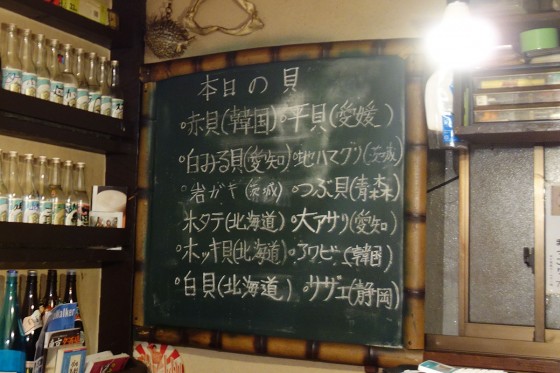 本日の貝
°赤貝(韓国)°平貝(愛媛)
°白みる貝(愛知)°地ハマグリ(茨城)
°岩ガキ(茨城)°つぶ貝(青森)
°ホタテ(北海道)°大アサリ(愛知)
°ホッキ貝(北海道)°アワビ(韓国)
°白貝(北海道)°サザエ(静岡)
Walker